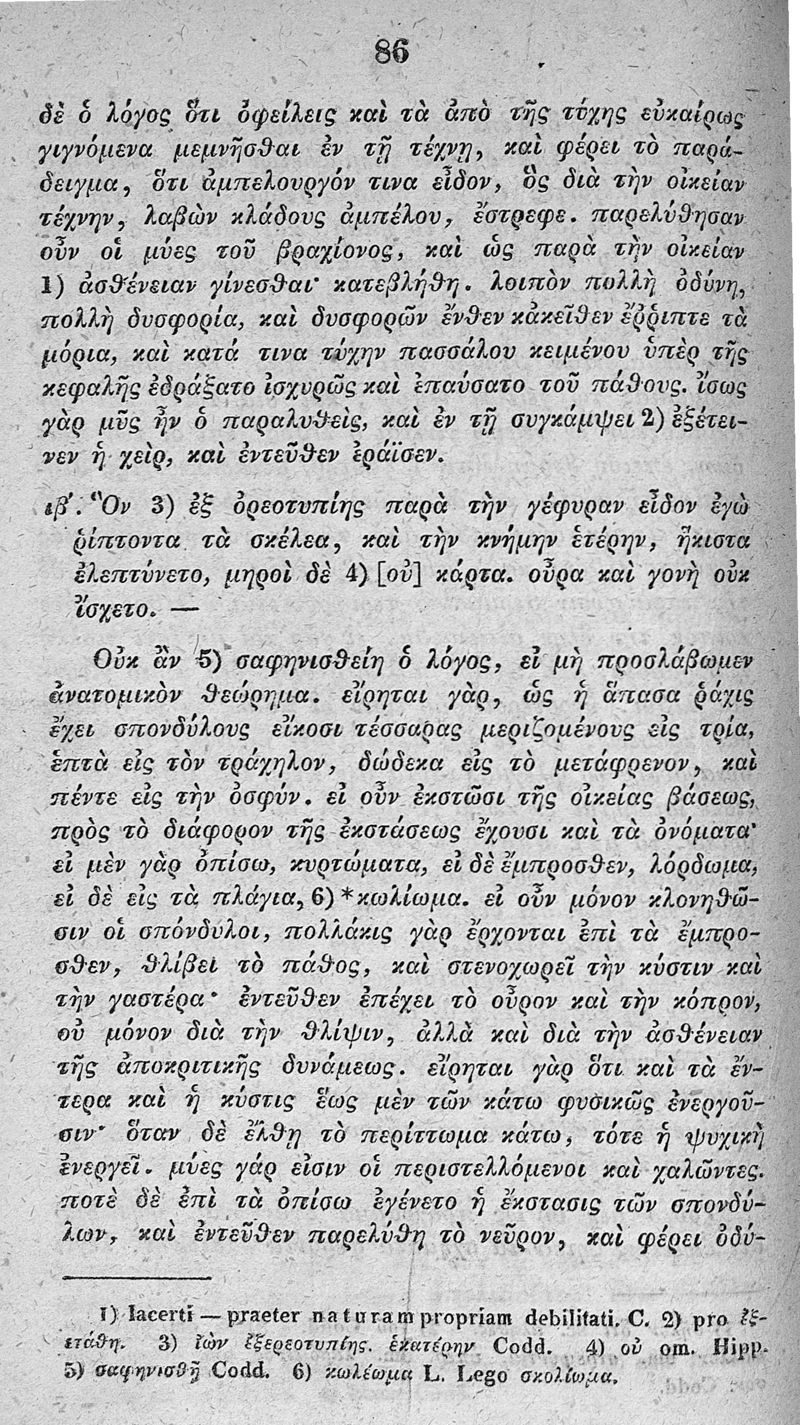 86
δὲ ὁ λόγος ὅτι ὀφείλεις καὶ τὰ ἀπὸ τῆς τύχης εὐκαίρως
γιγνόμενα μεμνῆσθαι ἐν τῇ τέχνῃ, καὶ φέρει τὸ παρά-
δειγμα, ὅτι ἀμπελουργόν τινα εἶδον, ὃς διὰ τὴν οἰκείαν
τέχνην, λαβὼν κλάδους ἀμπέλου, ἔστρεφε. παρελύθησαν
οὖν οἱ μύες τοῦ βραχίονος, καὶ ὡς παρὰ τὴν οἰκείαν
1) ἀσθένειαν γίνεσθαι· κατεβλήθη. λοιπὸν πολλὴ ὀδύνη,
πολλὴ δυσφορία, καὶ δυσφορῶν ἔνθεν κἀκεῖθεν ἔῤῥιπτε τὰ
μόρια, καὶ κατά τινα τύχην πασσάλου κειμένου ὑπὲρ τῆς
κεφαλῆς ἐδράξατο ἰσχυρῶς καὶ ἐπαύσατο τοῦ πάθους. ἴσως
γὰρ μῦς ἦν ὁ παραλυθεὶς, καὶ ἐν τῇ συγκάμψει 2) ἐξέτει-
νεν ἡ χεὶρ, καὶ ἐντεῦθεν ἐράϊσεν.
ιβʹ. Ὃν 3) ἐξ ὀρεοτυπίης παρὰ τὴν γέφυραν εἶδον ἐγὼ
ῥίπτοντα τὰ σκέλεα, καὶ τὴν κνήμην ἑτέρην, ἥκιστα
ἐλεπτύνετο, μηροὶ δὲ 4) [οὐ] κάρτα. οὖρα καὶ γονὴ οὐκ
ἴσχετο. —
Οὐκ ἂν 5) σαφηνισθείη ὁ λόγος, εἰ μὴ προσλάβωμεν
ἀνατομικὸν θεώρημα. εἴρηται γὰρ, ὡς ἡ ἅπασα ῥάχις
ἔχει σπονδύλους εἴκοσι τέσσαρας μεριζομένους εἰς τρία,
ἑπτὰ εἰς τὸν τράχηλον, δώδεκα εἰς τὸ μετάφρενον, καὶ
πέντε εἰς τὴν ὀσφύν. εἰ οὖν ἐκστῶσι τῆς οἰκείας βάσεως,
πρὸς τὸ διάφορον τῆς ἐκστάσεως ἔχουσι καὶ τὰ ὀνόματα·
εἰ μὲν γὰρ ὀπίσω, κυρτώματα, εἰ δὲ ἔμπροσθεν, λόρδωμα,
εἰ δὲ εἰς τὰ πλάγια, 6) *κωλίωμα. εἰ οὖν μόνον κλονηθῶ-
σιν οἱ σπόνδυλοι, πολλάκις γὰρ ἔρχονται ἐπὶ τὰ ἔμπρο-
σθεν, θλίβει τὸ πάθος, καὶ στενοχωρεῖ τὴν κύστιν καὶ
τὴν γαστέρα· ἐντεῦθεν ἐπέχει τὸ οὖρον καὶ τὴν κόπρον,
οὐ μόνον διὰ τὴν θλίψιν, ἀλλὰ καὶ διὰ τὴν ἀσθένειαν
τῆς ἀποκριτικῆς δυνάμεως. εἴρηται γὰρ ὅτι καὶ τὰ ἔν-
τερα καὶ ἡ κύστις ἕως μὲν τῶν κάτω φυσικῶς ἐνεργοῦ-
σιν· ὅταν δὲ ἔλθῃ τὸ περίττωμα κάτω, τότε ἡ ψυχικὴ
ἐνεργεῖ. μύες γάρ εἰσιν οἱ περιστελλόμενοι καὶ χαλῶντες.
ποτὲ δὲ ἐπὶ τὰ ὀπίσω ἐγένετο ἡ ἔκστασις τῶν σπονδύ-
λων, καὶ ἐντεῦθεν παρελύθη τὸ νεῦρον, καὶ φέρει ὀδύ-
1) lacerti — praeter naturam propriam debilitati. C. 2) pro ἐξ-
ετάθη. 3) ἰὼν ἐξερεοτυπίης. ἑκατέρην Codd. 4) οὐ om. Hipp.
5) σαφηνισθῇ Codd. 6) κωλέωμα L. Lego σκολίωμα.